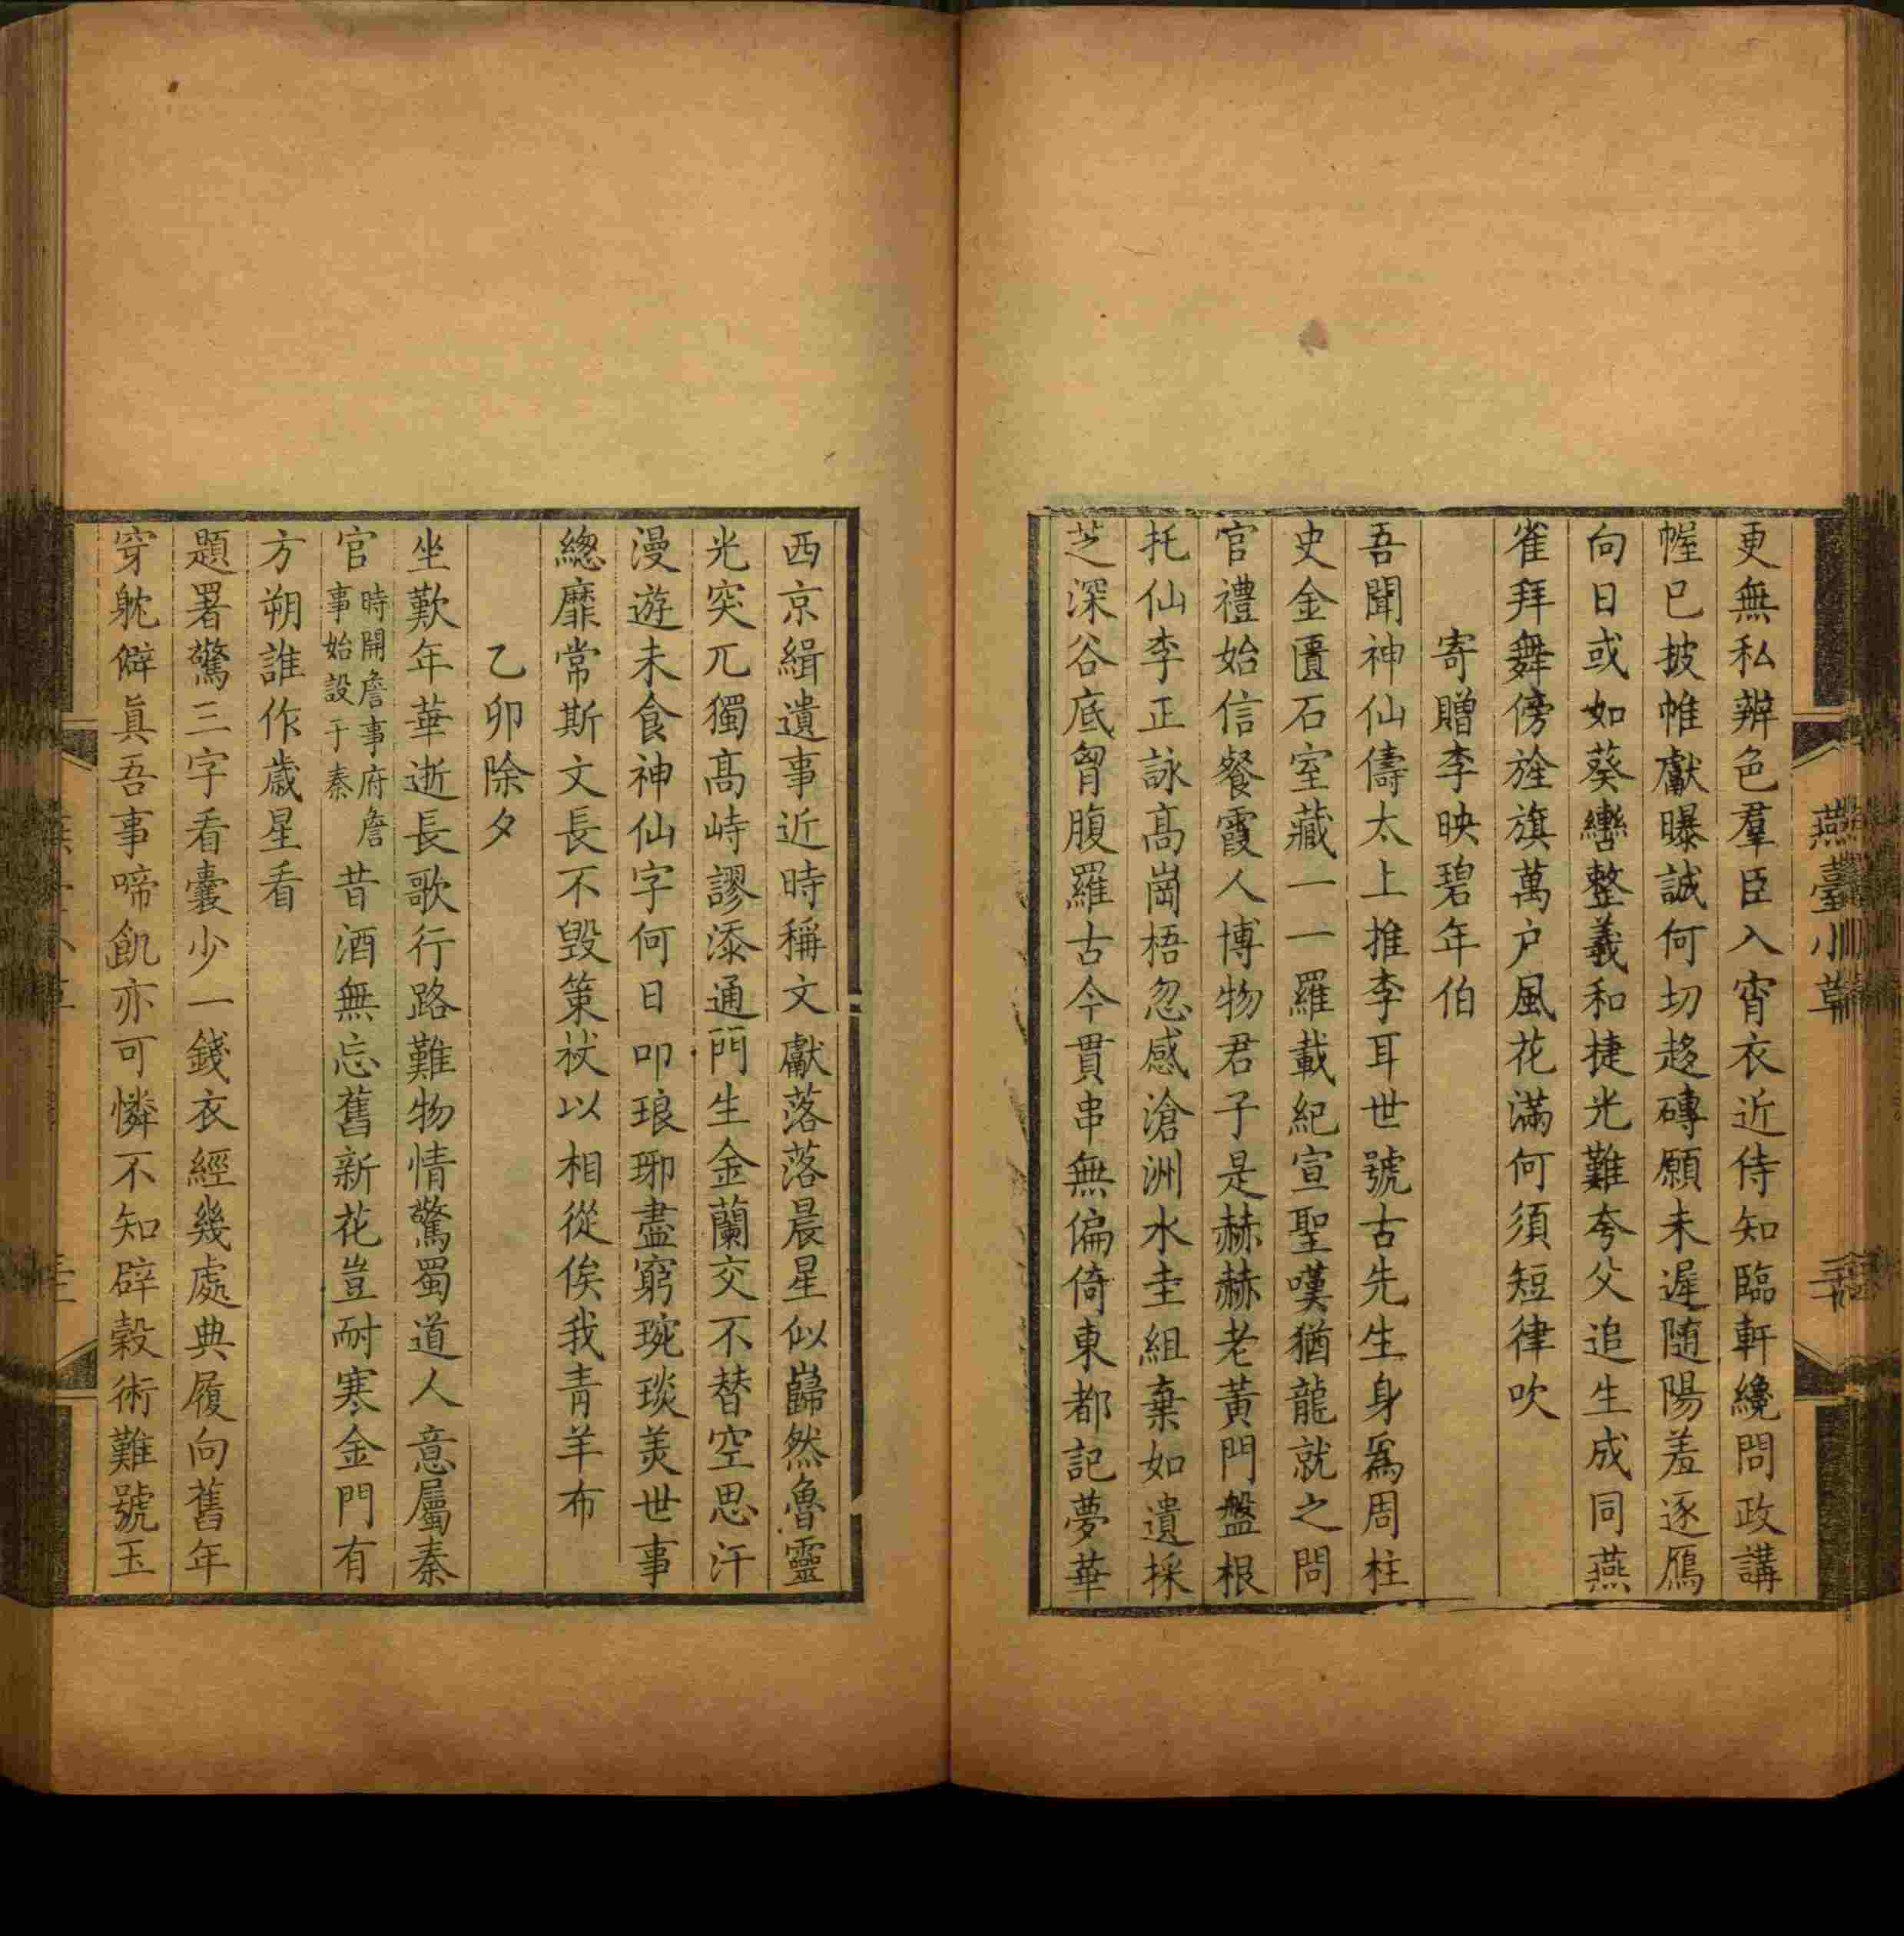 燕臺小草
更無私辨色羣臣入宵衣近侍知臨軒纔問政講
幄已披帷獻曝誠何切趍磚願未遲随陽羞逐鴈
向日或如葵轡整羲和捷光難夸父追生成同燕
雀拜舞傍旌旗萬户風花滿何須短律吹
寄贈李映碧年伯
吾聞神仙儔太上推李耳世號古先生身爲周柱
史金匱石室藏一一羅載紀宣聖嘆猶龍就之問
官禮始信餐霞人博物君子是赫赫老黃門盤根
托仙李正詠高崗梧忽感滄洲水圭組棄如遺採
芝深谷底胷腹羅古今貫串無偏倚東都記夢華
西京緝遺事近時稱文獻落落晨星似巋然魯靈
光突兀獨高峙謬添通門生金蘭交不替空思汗
漫遊未食神仙字何日叩琅琊盡窮琬琰美世事
緫靡常斯文長不毀策杖以相從俟我青羊布
乙卯除夕
坐歎年華逝長歌行路難物情驚蜀道人意屬秦
官時開詹事府詹事始設于秦昔酒無忘舊新花豈耐寒金門有
方朔誰作歳星看
題署驚三字看囊少一錢衣經幾處典履向舊年
穿躭僻眞吾事啼飢亦可憐不知辟穀術難號玉